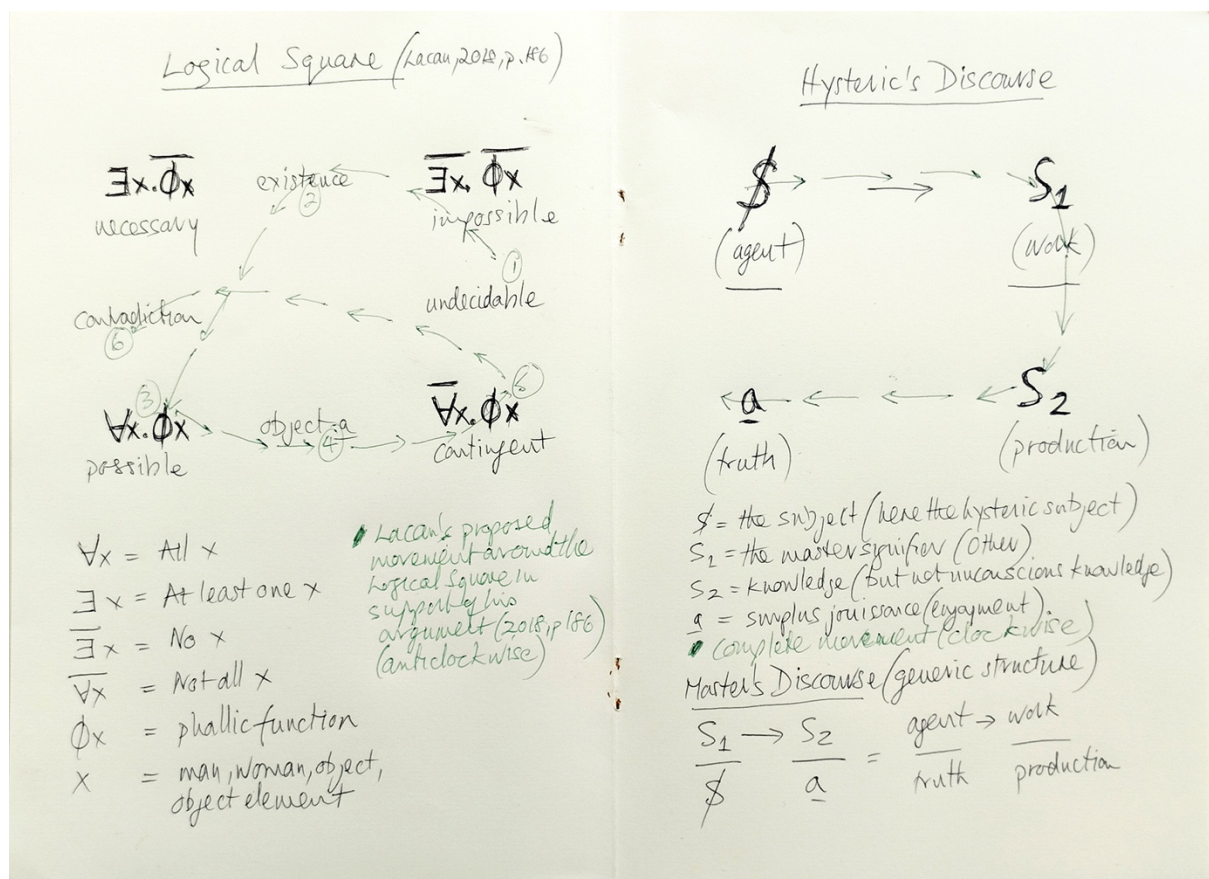 Logical Square (Lacan, 2018, p.186)
∃x.Φ̅x̅
necessary
existence
②
∃̅x̅.Φ̅x̅
impossible
①
undecidable
contradiction
⑥
③
∀x.Φx
possible
object a
④
⑤
∀̅x.Φx
contingent
∀x = All x
∃x = At least one x
∃̅x̅ = No x
∀̅x̅ = Not all x
Φx = phallic function
x = man, woman, object,
object element
Lacan's proposed
movement around the
Logical Square in
support of his
argument (2018, p186)
(anticlockwise)
Hysteric's Discourse
$
(agent)
S₁
(work)
a
(truth)
S₂
(production)
$ = the subject (here the hysteric subject)
S₁ = the master signifier (Other)
S₂ = knowledge (but not unconscious knowledge)
a = surplus jouissance (enjoyment).
complete movement (clockwise)
Master's Discourse (generic structure)
S₁ → S₂ = agent → work
$ a truth production